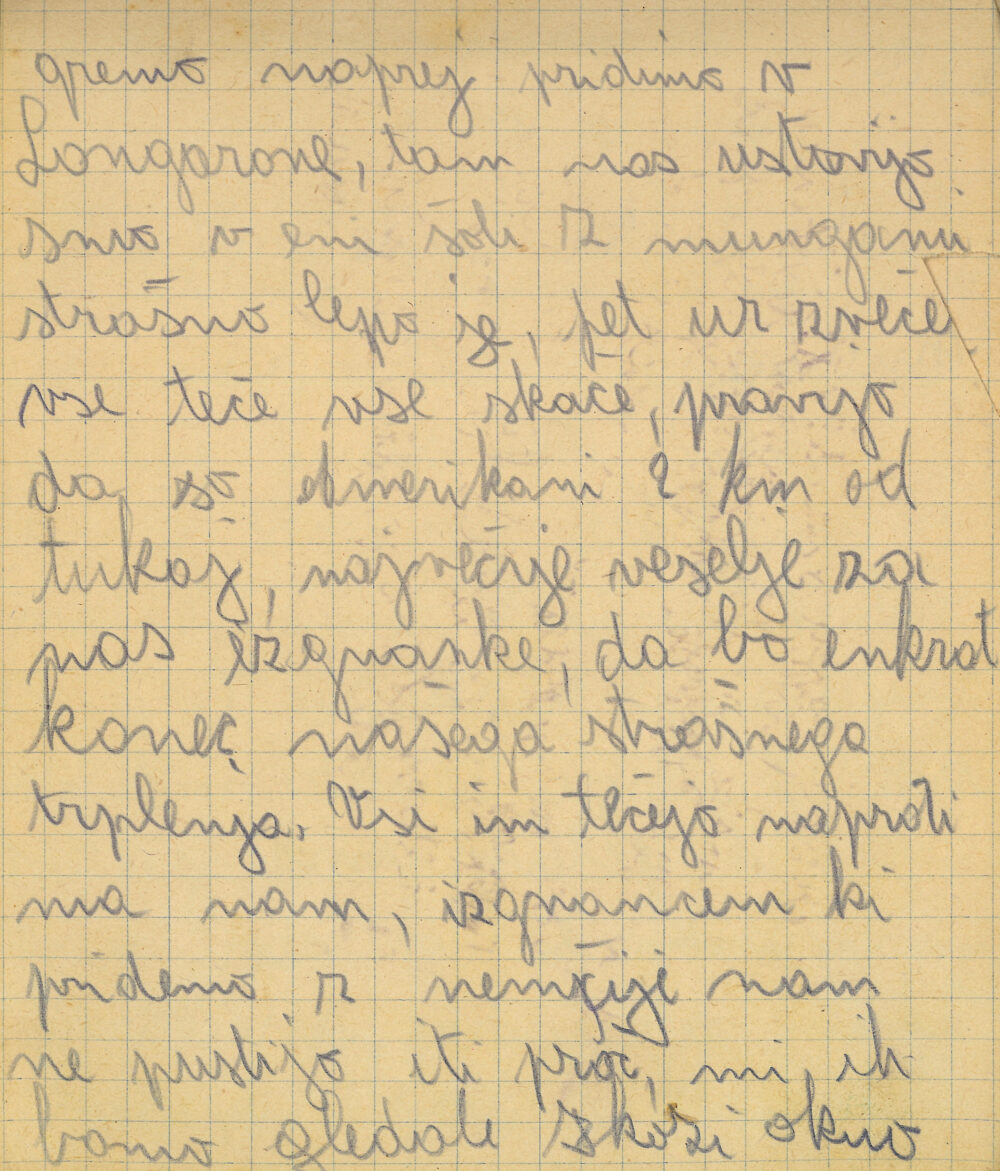 gremo naprej pridimo v
Longarone, tam nas ustavijo
smo v eni šoli z mungami
strašno lepo je, pet ur zveče
vse teče vse skače, pravijo
da so Amerikani 2 km od
tukaj, največije veselje za
nas izgnanke, da bo enkrat
konec našega strašnega
trplenja. Vsi im tečejo naproti
ma nam, izgnancem ki
pridemo z nemčije nam
ne pustijo iti proč, mi ih
bomo gledali skozi okno